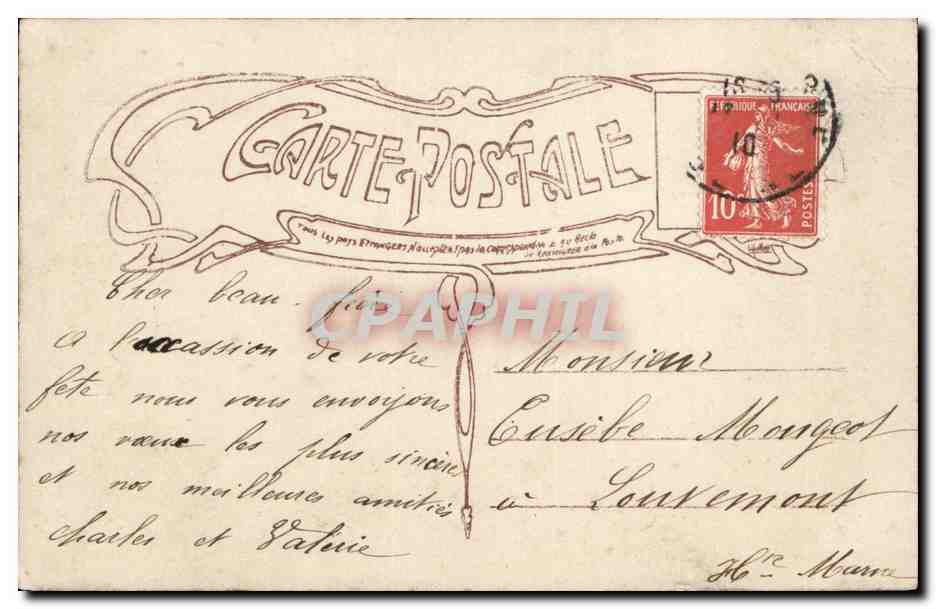 CARTE POSTALE
Tous les pays Etrangers n'acceptent pas la correspondance au Recto
se renseigner à la Poste
REPUBLIQUE FRANÇAISE
10
POSTES
10
CPAPHIL
Cher beau-frère
A l'occassion de votre
fête nous vous envoyons
nos vœux les plus sincères
et nos meilleures amitiés
Charles et Valérie
Monsieur
Eusèbe Mougeot
à Louvemont
Hte Marne